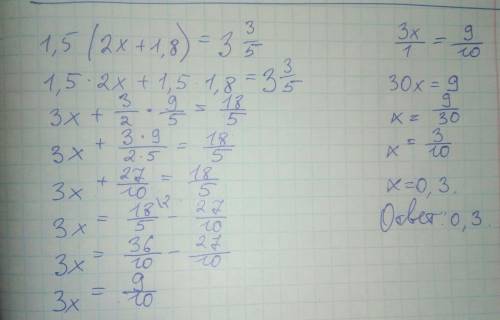 1,5 (2x+1,8) = 3 3/5
1,5 · 2x + 1,5 · 1,8 = 3 3/5
3x + 3/2 · 9/5 = 18/5
3x + 3·9/2·5 = 18/5
3x + 27/10 = 18/5
3x = 18/5 \2 - 27/10
3x = 36/10 - 27/10
3x = 9/10
3x/1 = 9/10
30x = 9
x = 9/30
x = 3/10
x = 0,3.
Ответ: 0,3.